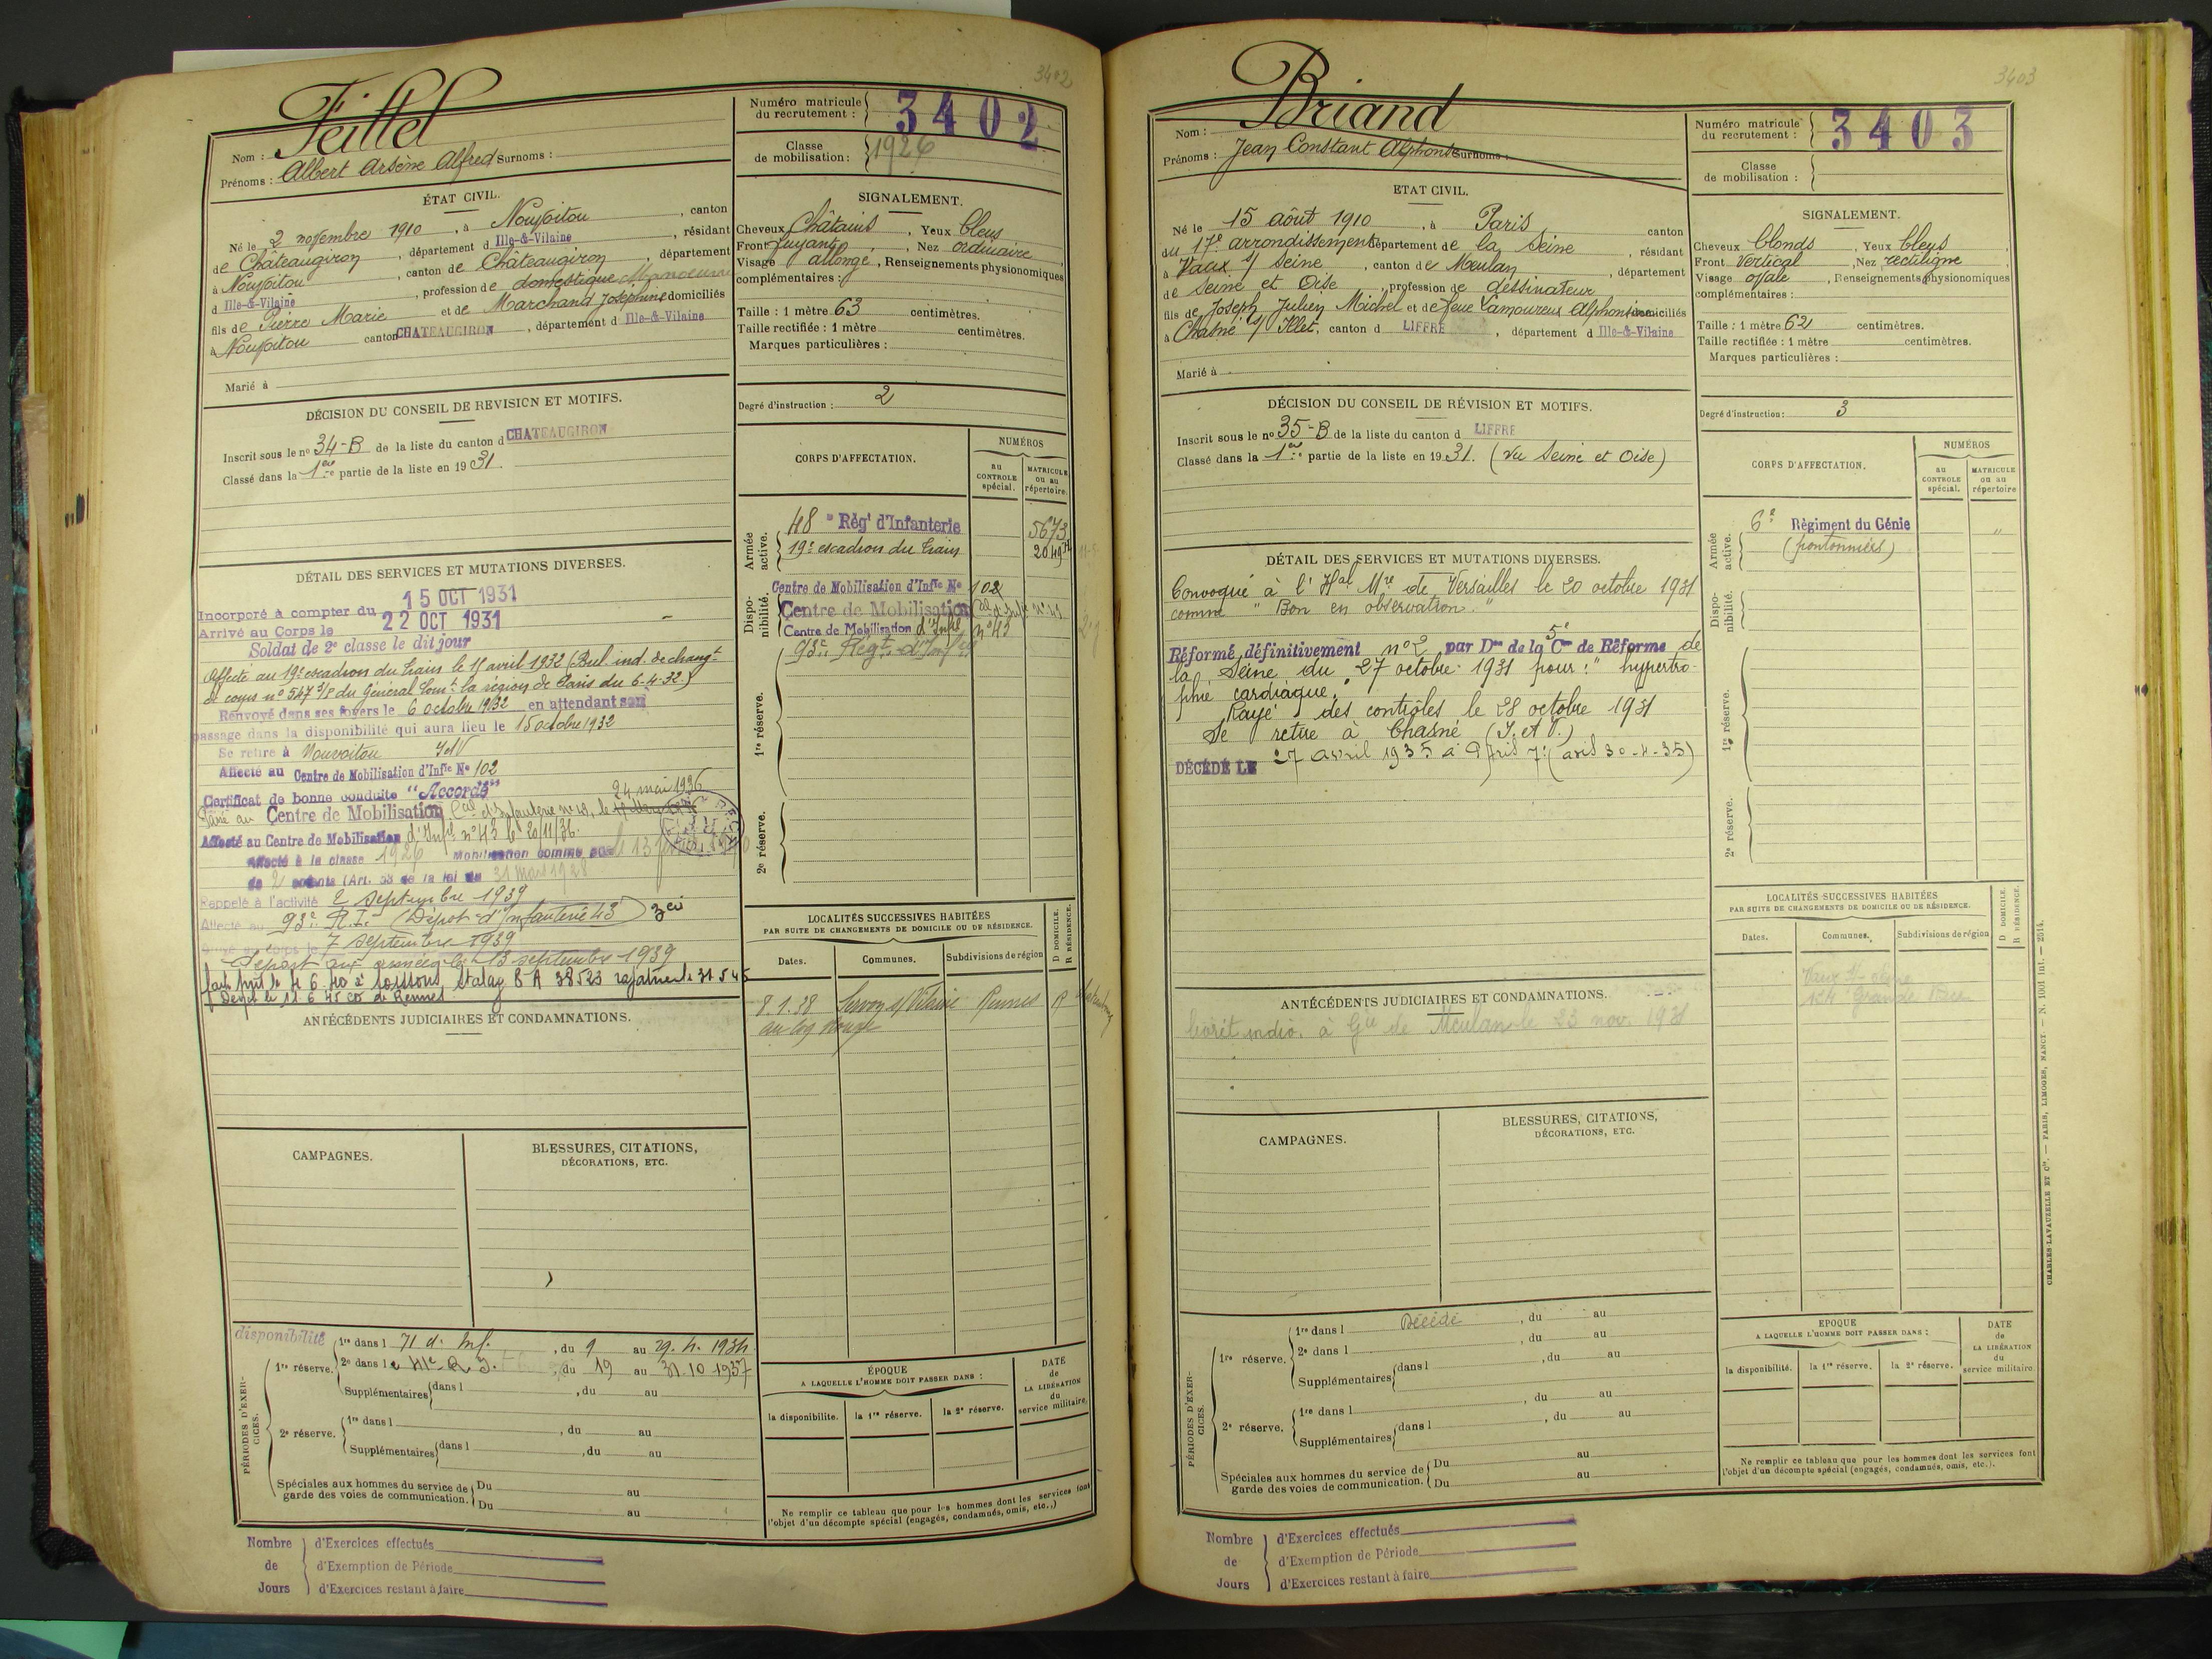 3402
Feillel
Nom :
Prénoms : Albert Arsène Alfred Surnoms :
Numéro matricule du recrutement : 3402
Classe de mobilisation : 1926
ÉTAT CIVIL.
Né le 2 novembre 1910, à Nouvoitou, canton
de Châteaugiron, département d Ille-&-Vilaine, résidant
à Nouvoitou, canton de Châteaugiron, département
d Ille-&-Vilaine, profession de domestique Manoeuvre
fils de Pierre Marie et de Marchand Joséphine domiciliés
à Nouvoitou canton CHATEAUGIRON, département d Ille-&-Vilaine
Marié à
SIGNALEMENT.
Cheveux Châtains, Yeux bleus
Front fuyant, Nez ordinaire
Visage allongé, Renseignements physionomiques
complémentaires :
Taille : 1 mètre 63 centimètres.
Taille rectifiée : 1 mètre centimètres.
Marques particulières :
Degré d'instruction : 2
DÉCISION DU CONSEIL DE REVISION ET MOTIFS.
Inscrit sous le no 34-B de la liste du canton d CHATEAUGIRON
Classé dans la 1ere partie de la liste en 1931.
CORPS D'AFFECTATION.
NUMÉROS
au CONTROLE spécial.
MATRICULE ou au répertoire.
Armée active.
48e Régt d'Infanterie 5673
19e escadron du train 2049
Disponibilité.
Centre de Mobilisation d'Infie No 102
Centre de Mobilisation Cal d'Infie n° 41
Centre de Mobilisation d'Infie n° 43
93e Régt d'Infie
1re réserve.
2e réserve.
DÉTAIL DES SERVICES ET MUTATIONS DIVERSES.
Incorporé à compter du 15 OCT 1931
Arrivé au Corps le 22 OCT 1931
Soldat de 2e classe le dit jour
Affecté au 19e escadron du train le 11 avril 1932 (Bul. ind. de changt
de corps n° 547 3/P du Général Comt la région de Paris du 6-4-32.)
Renvoyé dans ses foyers le 6 octobre 1932 en attendant son
passage dans la disponibilité qui aura lieu le 15 octobre 1932
Se retire à Nouvoitou I et V
Affecté au Centre de Mobilisation d'Infie No 102
Certificat de bonne conduite "Accordé"
24 mai 1936
Centre de Mobilisation Cal d'Infanterie
Affecté au Centre de Mobilisation d'Infie n° 43 le 20/11/36.
Affecté à la classe 1926 Mobilisation comme père
de 2 enfants (Art. 58 de la loi du 31 mars 1928
Rappelé à l'activité 2 septembre 1939
Affecté au 93e R.I. (Dépôt d'Infanterie 43)
Arrivé au corps le 7 septembre 1939
Départ aux armées le 13 septembre 1939
fait pris le 4 6 40 à Soissons Stalag 8 A 38523 rapatrié le 31 5 45
Dém le 11 6 45 CD de Rennes
ANTÉCÉDENTS JUDICIAIRES ET CONDAMNATIONS.
LOCALITÉS SUCCESSIVES HABITÉES
PAR SUITE DE CHANGEMENTS DE DOMICILE OU DE RÉSIDENCE.
D DOMICILE. R RÉSIDENCE.
Dates. Communes. Subdivisions de région
8.1.38 Servon s/ Vilaine Rennes R
au Coq Rouge
CAMPAGNES.
BLESSURES, CITATIONS,
DÉCORATIONS, ETC.
PÉRIODES D'EXERCICES.
disponibilité
1re réserve. 1re dans l 71 d. Inf., du 9 au 29.4.1934
2e dans le 41e R.I., du 19 au 31.10.1937
Supplémentaires dans l, du au
2e réserve. 1re dans l, du au
Supplémentaires dans l, du au
Spéciales aux hommes du service de garde des voies de communication. Du au
Du au
ÉPOQUE
A LAQUELLE L'HOMME DOIT PASSER DANS :
la disponibilité. la 1re réserve. la 2e réserve.
DATE de LA LIBÉRATION du service militaire.
Ne remplir ce tableau que pour les hommes dont les services font
l'objet d'un décompte spécial (engagés, condamnés, omis, etc.,)
Nombre de Jours
d'Exercices effectués
d'Exemption de Période
d'Exercices restant à faire
3403
Briand
Nom :
Prénoms : Jean Constant Alphonse Surnoms :
Numéro matricule du recrutement : 3403
Classe de mobilisation :
ETAT CIVIL.
Né le 15 août 1910, à Paris canton
du 17e arrondissement département de la Seine, résidant
à Vaux s/ Seine, canton de Meulan, département
de Seine et Oise, profession de dessinateur
fils de Joseph Julien Michel et de feue Lamoureux Alphonsine domiciliés
à Chasné s/ Illet, canton d LIFFRÉ, département d Ille-&-Vilaine
Marié à
SIGNALEMENT.
Cheveux blonds, Yeux bleus
Front Vertical, Nez rectiligne
Visage ovale, Renseignements physionomiques
complémentaires :
Taille : 1 mètre 62 centimètres.
Taille rectifiée : 1 mètre centimètres.
Marques particulières :
Degré d'instruction : 3
DÉCISION DU CONSEIL DE RÉVISION ET MOTIFS.
Inscrit sous le no 35-B de la liste du canton d LIFFRÉ
Classé dans la 1ere partie de la liste en 1931. (Vu Seine et Oise)
CORPS D'AFFECTATION.
NUMÉROS
au CONTROLE spécial.
MATRICULE ou au répertoire
Armée active.
6e Régiment du Génie "
(pontonniers)
Disponibilité.
1re réserve.
2e réserve.
DÉTAIL DES SERVICES ET MUTATIONS DIVERSES.
Convoqué à l'Hal Mre de Versailles le 20 octobre 1931
comme "Bon en observation."
Réformé définitivement n° 2 par Don de la 5e Con de Réforme de
la Seine du 27 octobre 1931 pour : "hypertro-
phie cardiaque."
Rayé des contrôles le 28 octobre 1931
Se retire à Chasné (I. et V.)
DÉCÉDÉ LE 27 avril 1935 à Paris 7e (avis 30-4-35)
ANTÉCÉDENTS JUDICIAIRES ET CONDAMNATIONS.
livret indiv. à Gie de Meulan le 23 nov. 1931
LOCALITÉS SUCCESSIVES HABITÉES
PAR SUITE DE CHANGEMENTS DE DOMICILE OU DE RÉSIDENCE.
D DOMICILE. R RÉSIDENCE.
Dates. Communes. Subdivisions de région
Vaux s/ Seine
Grande Rue
CAMPAGNES.
BLESSURES, CITATIONS,
DÉCORATIONS, ETC.
PÉRIODES D'EXERCICES.
1re réserve. 1re dans l Décédé, du au
2e dans l, du au
Supplémentaires dans l, du au
2e réserve. 1re dans l, du au
Supplémentaires dans l, du au
Spéciales aux hommes du service de garde des voies de communication. Du au
Du au
EPOQUE
A LAQUELLE L'HOMME DOIT PASSER DANS :
la disponibilité. la 1re réserve. la 2e réserve.
DATE de LA LIBÉRATION du service militaire.
Ne remplir ce tableau que pour les hommes dont les services font
l'objet d'un décompte spécial (engagés, condamnés, omis, etc.).
CHARLES-LAVAUZELLE ET Cie. — PARIS, LIMOGES, NANCY. — N. 1001 int. — 2514.
Nombre de Jours
d'Exercices effectués
d'Exemption de Période
d'Exercices restant à faire